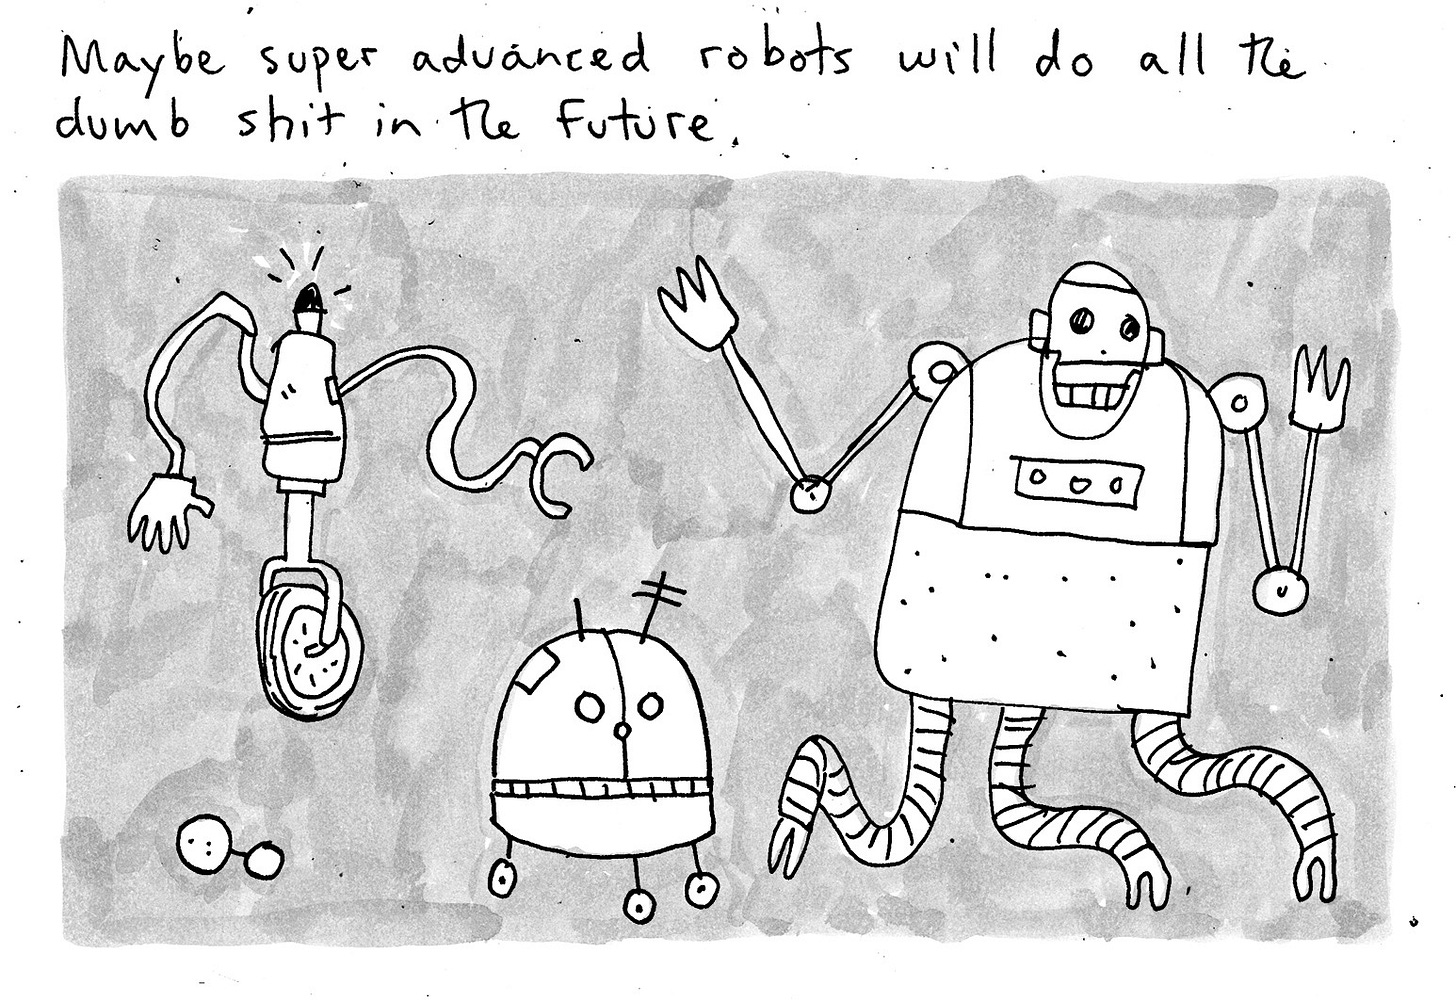 Maybe super advanced robots will do all the
dumb shit in the future.